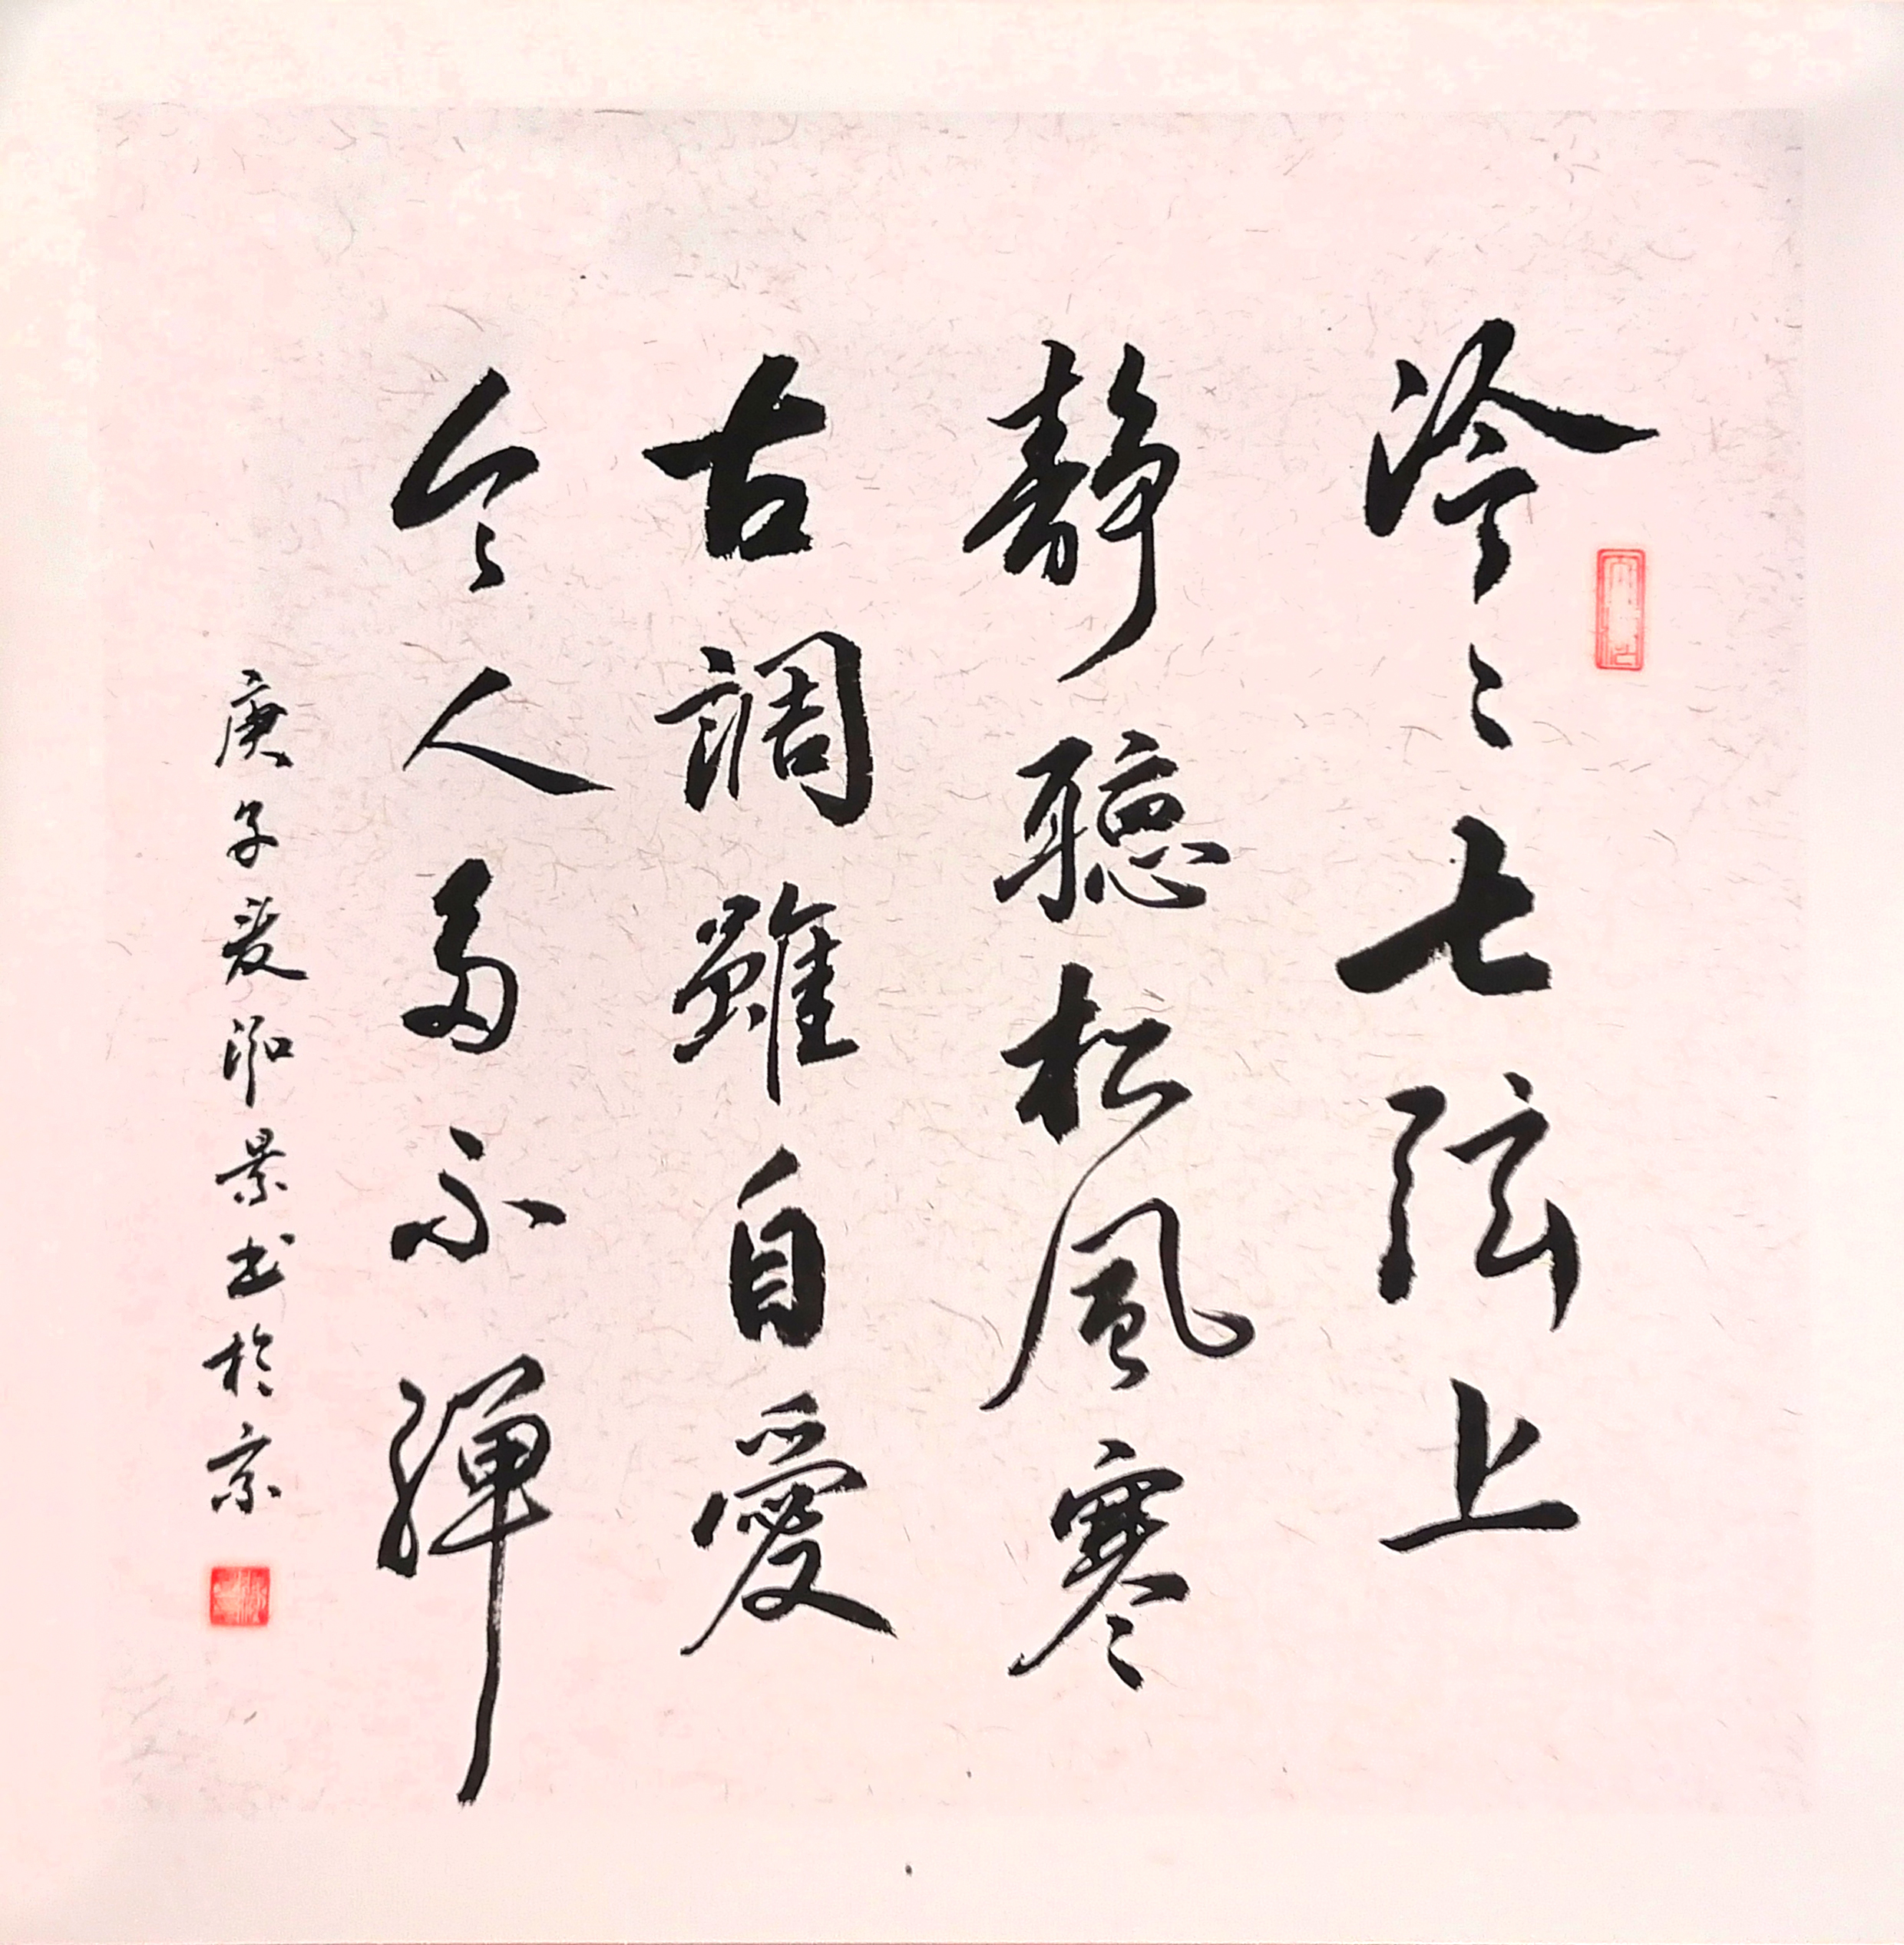 泠〻七弦上
静聽松風寒
古調雖自愛
今人多不彈
庚子夏泓景书於京